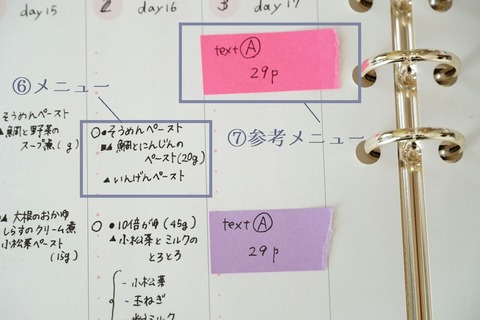 day15
2 day16
3 day17
text Ⓐ
29p
⑥メニュー
⑦参考メニュー
そうめんペースト
▲鯛と野菜の
スープ煮( g)
○●そうめんペースト
■▲鯛とにんじんの
ペースト(20g)
▲いんげんペースト
▲大根のおかゆ
しらすのクリーム煮
小松菜ペースト
(15g)
○ ●10倍がゆ(45g)
▲小松菜とミルクの
とろとろ
- 小松菜
- 玉ねぎ
- 粉ミルク
text Ⓐ
29p